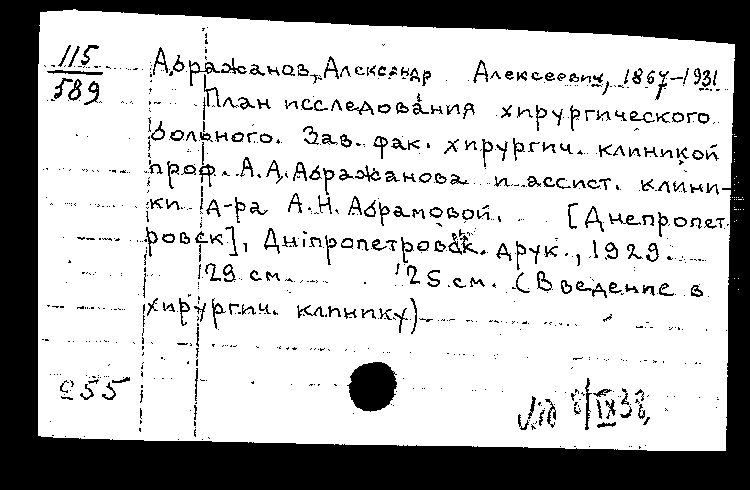 115
589
Абражанов, Александр Алексеевич, 1867-1931
План исследования хирургического
больного. Зав. фак. хирургич. клиникой
проф. А.А. Абражанова и ассист. клини-
ки д-ра А.Н. Абрамовой. [Днепропет
ровск], Дніпропетровськ. друк., 1929.
29 см. 25 см. (Введение в
хирургич. клинику)
255
8/IX 38,